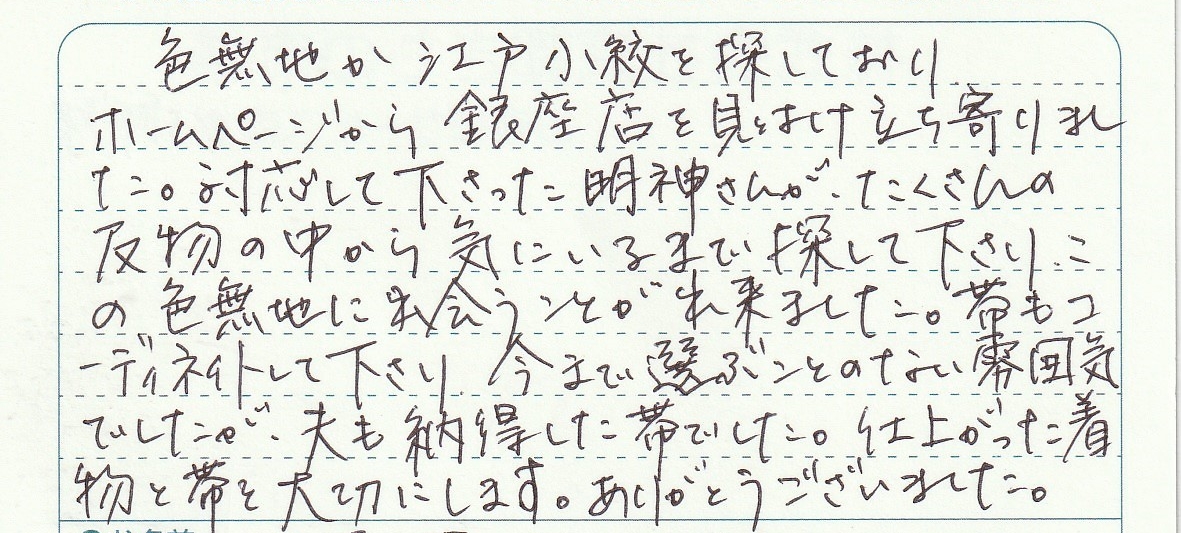 色無地か江戸小紋を探しており
ホームページから銀座店を見つけ立ち寄りまし
た。対応して下さった明神さんが、たくさんの
反物の中から気にいるまで探して下さり、こ
の色無地に出会うことが出来ました。帯もコ
ーディネイトして下さり、今まで選ぶことのない雰囲気
でしたが、夫も納得した帯でした。仕上がった着
物と帯を大切にします。ありがとうございました。